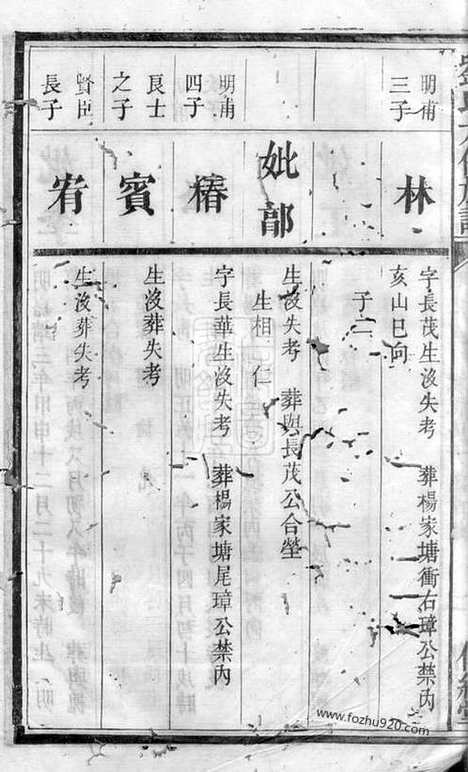 明甫
三子
林
字長茂生沒失考 葬楊家塘衝右璋公禁內
亥山巳向
子二
妣鄒
生沒失考 葬與長茂公合塋
生相 仁
明甫
四子
椿
字長華生沒失考 葬楊家塘尾璋公禁內
良士
之子
賓
生沒葬失考
賢臣
長子
宥
生沒葬失考
www.fozhu920.com